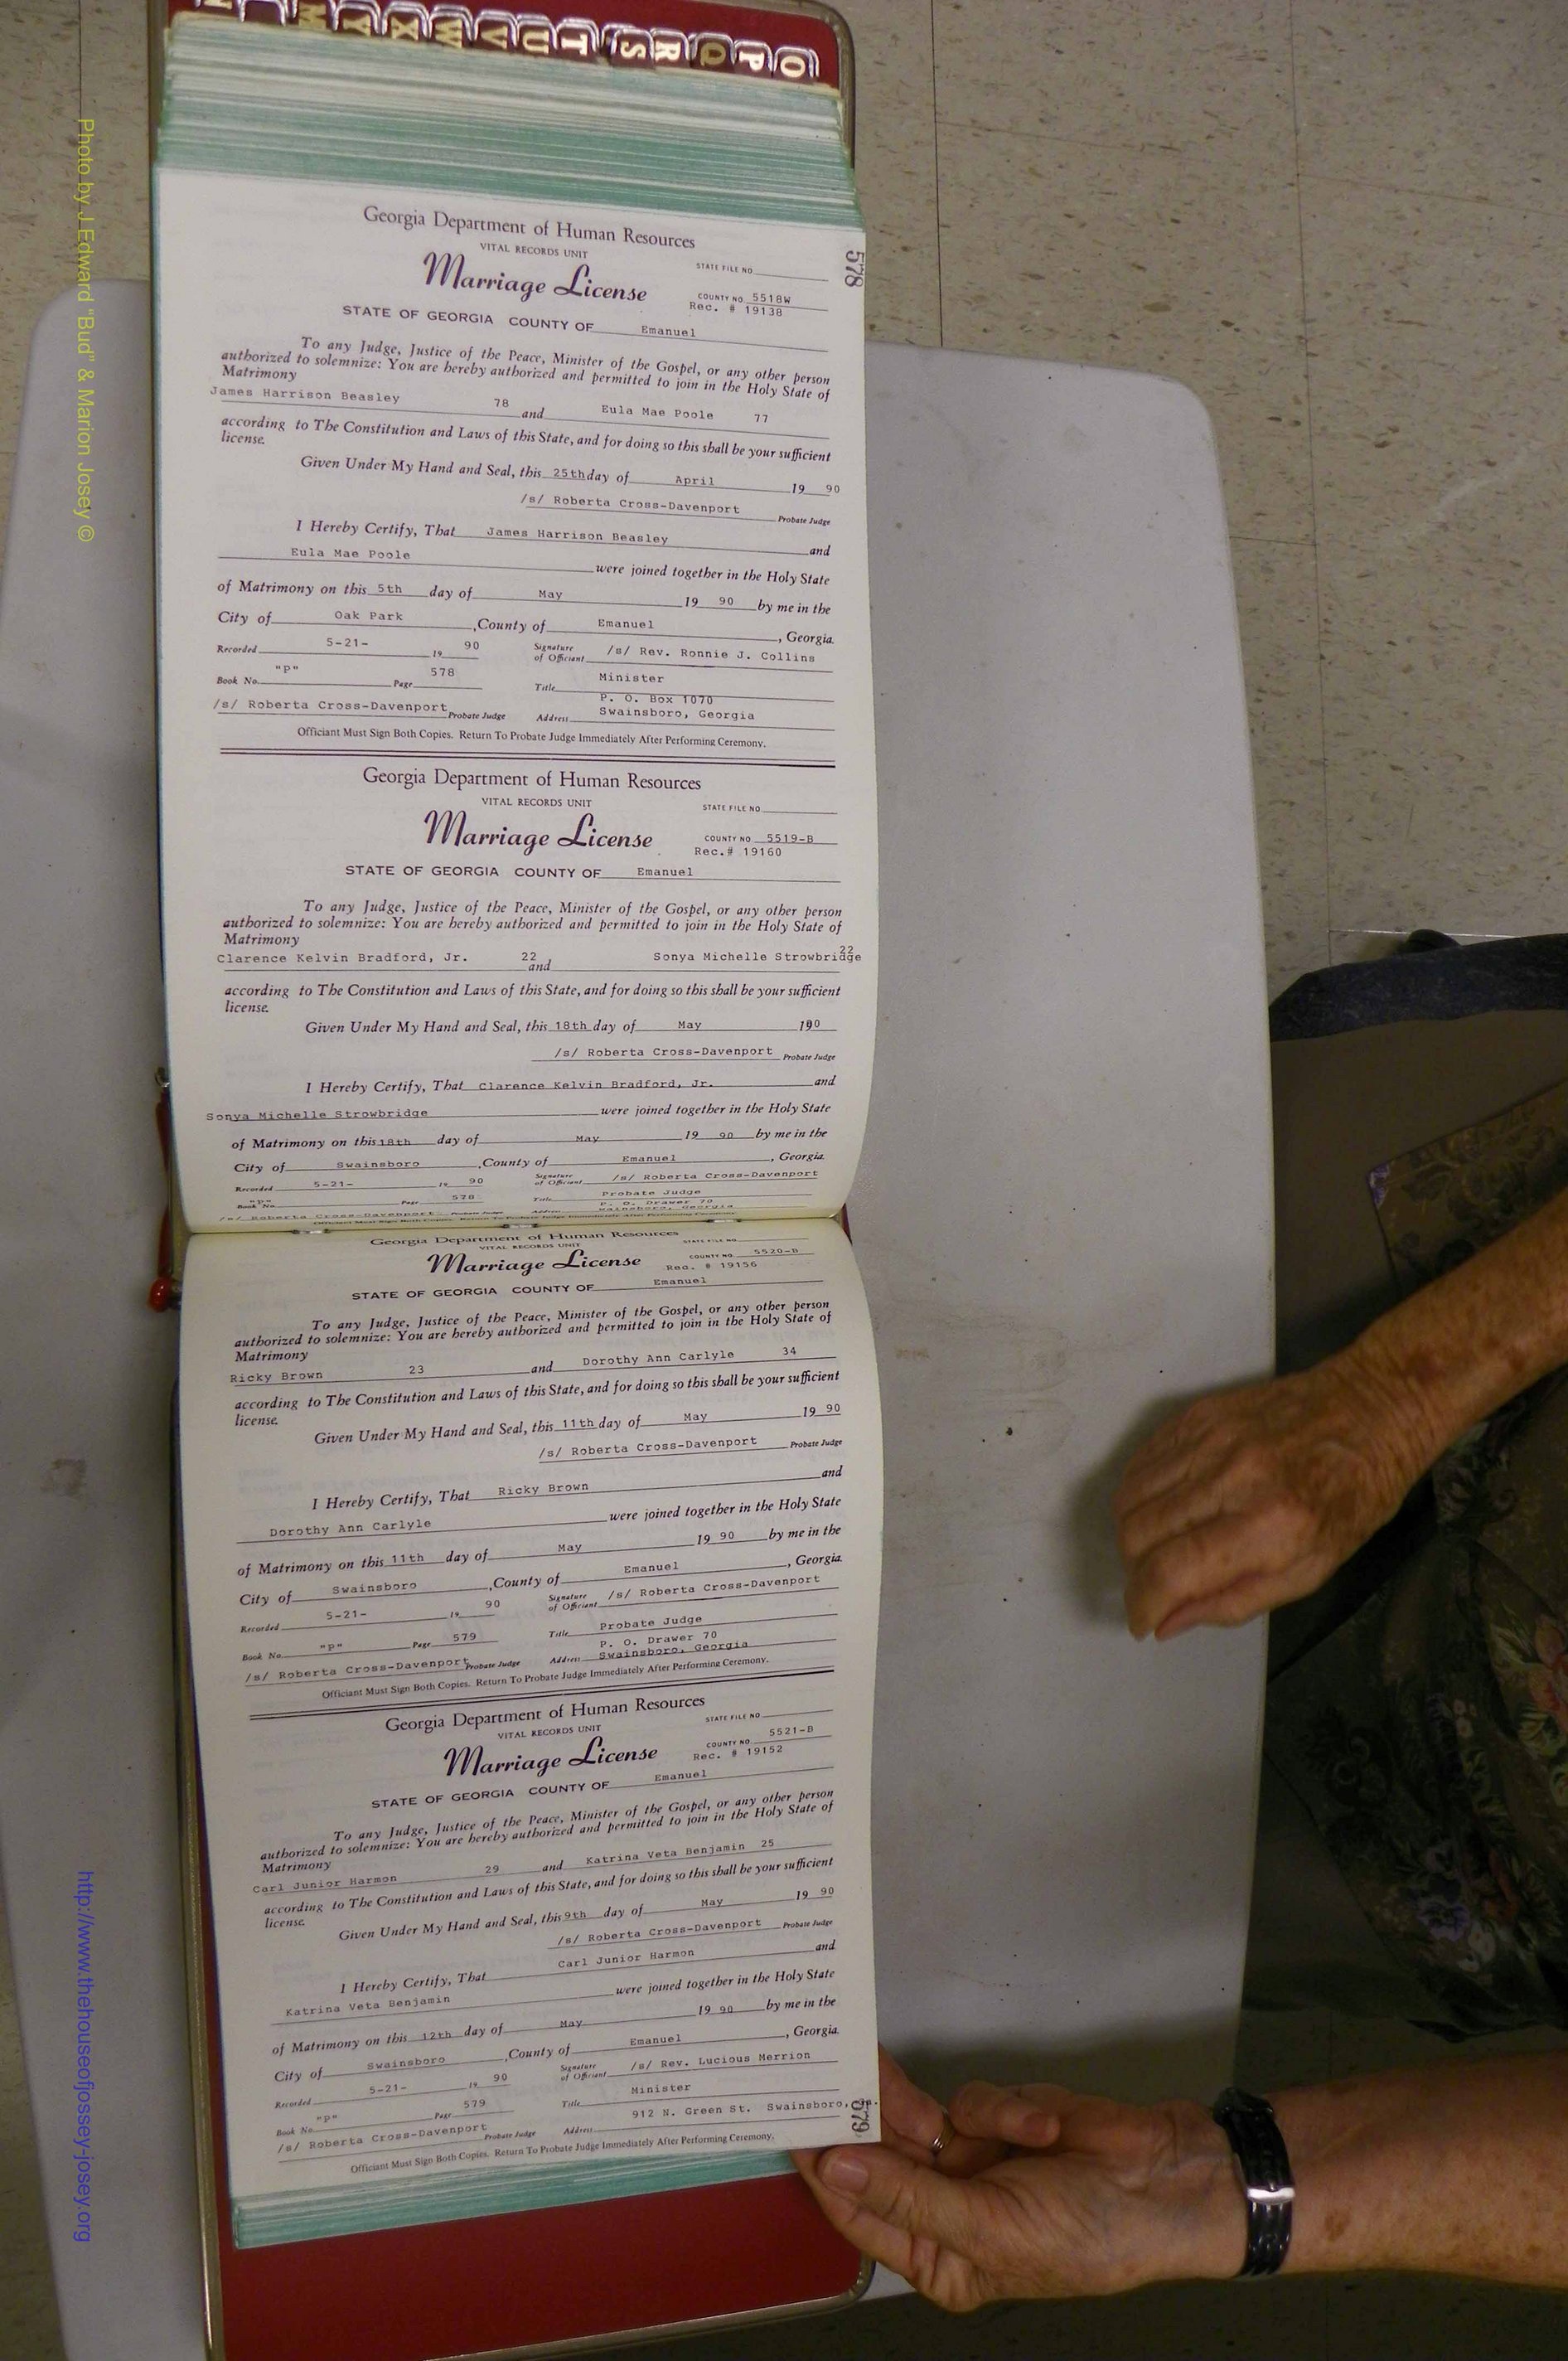 O P Q R S T U V W X Y M N
Georgia Department of Human Resources
VITAL RECORDS UNIT
STATE FILE NO
578
Marriage License
COUNTY NO 5518W
Rec. # 19138
STATE OF GEORGIA COUNTY OF Emanuel
To any Judge, Justice of the Peace, Minister of the Gospel, or any other person
authorized to solemnize: You are hereby authorized and permitted to join in the Holy State of
Matrimony
James Harrison Beasley 78 and Eula Mae Poole 77
according to The Constitution and Laws of this State, and for doing so this shall be your sufficient
license.
Given Under My Hand and Seal, this 25th day of April 19 90
/s/ Roberta Cross-Davenport Probate Judge
I Hereby Certify, That James Harrison Beasley and
Eula Mae Poole were joined together in the Holy State
of Matrimony on this 5th day of May 19 90 by me in the
City of Oak Park ,County of Emanuel , Georgia.
Recorded 5-21- 19 90 Signature of Officiant /s/ Rev. Ronnie J. Collins
Book No. "P" Page 578 Title Minister
P. O. Box 1070
/s/ Roberta Cross-Davenport Probate Judge Address Swainsboro, Georgia
Officiant Must Sign Both Copies. Return To Probate Judge Immediately After Performing Ceremony.
Georgia Department of Human Resources
VITAL RECORDS UNIT
STATE FILE NO
Marriage License
COUNTY NO 5519-B
Rec.# 19160
STATE OF GEORGIA COUNTY OF Emanuel
To any Judge, Justice of the Peace, Minister of the Gospel, or any other person
authorized to solemnize: You are hereby authorized and permitted to join in the Holy State of
Matrimony
Clarence Kelvin Bradford, Jr. 22 and Sonya Michelle Strowbridge 22
according to The Constitution and Laws of this State, and for doing so this shall be your sufficient
license.
Given Under My Hand and Seal, this 18th day of May 190
/s/ Roberta Cross-Davenport Probate Judge
I Hereby Certify, That Clarence Kelvin Bradford, Jr. and
Sonya Michelle Strowbridge were joined together in the Holy State
of Matrimony on this 18th day of May 19 90 by me in the
City of Swainsboro ,County of Emanuel , Georgia.
Recorded 5-21- 19 90 Signature of Officiant /s/ Roberta Cross-Davenport
Book No. "P" Page 578 Title Probate Judge
P. O. Drawer 70
/s/ Roberta Cross-Davenport Probate Judge Address Swainsboro, Georgia
Officiant Must Sign Both Copies. Return To Probate Judge Immediately After Performing Ceremony.
Georgia Department of Human Resources
VITAL RECORDS UNIT
STATE FILE NO
Marriage License
COUNTY NO 5520-B
Rec. # 19156
STATE OF GEORGIA COUNTY OF Emanuel
To any Judge, Justice of the Peace, Minister of the Gospel, or any other person
authorized to solemnize: You are hereby authorized and permitted to join in the Holy State of
Matrimony
Ricky Brown 23 and Dorothy Ann Carlyle 34
according to The Constitution and Laws of this State, and for doing so this shall be your sufficient
license.
Given Under My Hand and Seal, this 11th day of May 19 90
/s/ Roberta Cross-Davenport Probate Judge
I Hereby Certify, That Ricky Brown and
Dorothy Ann Carlyle were joined together in the Holy State
of Matrimony on this 11th day of May 19 90 by me in the
City of Swainsboro ,County of Emanuel , Georgia.
Recorded 5-21- 19 90 Signature of Officiant /s/ Roberta Cross-Davenport
Book No. "P" Page 579 Title Probate Judge
P. O. Drawer 70
/s/ Roberta Cross-Davenport Probate Judge Address Swainsboro, Georgia
Officiant Must Sign Both Copies. Return To Probate Judge Immediately After Performing Ceremony.
Georgia Department of Human Resources
VITAL RECORDS UNIT
STATE FILE NO
Marriage License
COUNTY NO 5521-B
Rec. # 19152
STATE OF GEORGIA COUNTY OF Emanuel
To any Judge, Justice of the Peace, Minister of the Gospel, or any other person
authorized to solemnize: You are hereby authorized and permitted to join in the Holy State of
Matrimony
Carl Junior Harmon 29 and Katrina Veta Benjamin 25
according to The Constitution and Laws of this State, and for doing so this shall be your sufficient
license.
Given Under My Hand and Seal, this 9th day of May 19 90
/s/ Roberta Cross-Davenport Probate Judge
I Hereby Certify, That Carl Junior Harmon and
Katrina Veta Benjamin were joined together in the Holy State
of Matrimony on this 12th day of May 19 90 by me in the
City of Swainsboro ,County of Emanuel , Georgia.
Recorded 5-21- 19 90 Signature of Officiant /s/ Rev. Lucious Merrion
Book No. "P" Page 579 Title Minister
/s/ Roberta Cross-Davenport Probate Judge Address 912 N. Green St. Swainsboro, Ga.
579
Officiant Must Sign Both Copies. Return To Probate Judge Immediately After Performing Ceremony.
Photo by J Edward "Bud" & Marion Josey ©
http://www.thehouseofjossey-josey.org